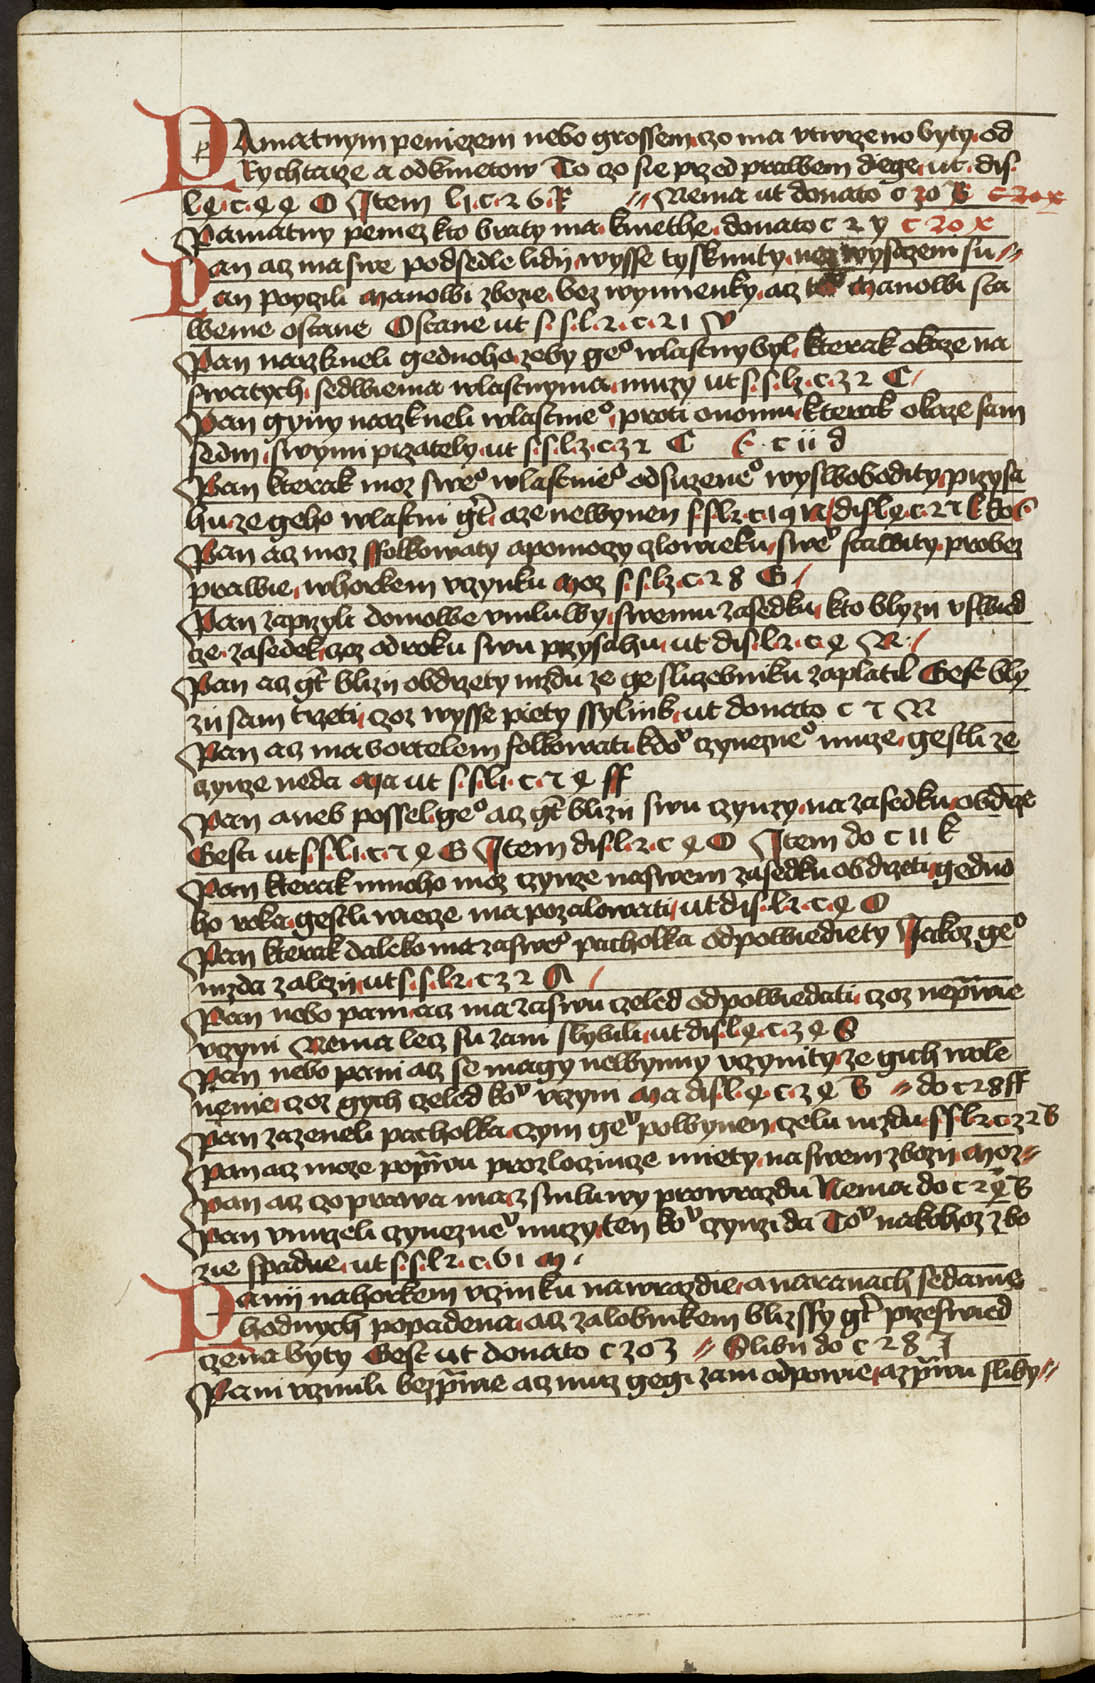 PAmatnym penizem nebo grossem czo ma vtwrzeno byty od
Rychtarze a od kmetow To czo sie przed prawem dege ut dis
l 4 c 4 4 O Item l 1 c 2 6 R Nema ut donato c 30 B c 20 x
Pamatny peniez kto braty ma kmethe donato c 2 y c 20 x
Pan acz ma swe podsedle lidi wysse tysknuty nez wysazeni su
Pan poyczili Manowi zbozie bez wymienky acz Manowi sta
weme ostane Ostane ut s s l 2 c 21 V
Pan narzkneli gednoho zeby geo wlastny byl kterak okaze na
swatych sedwiema wlastnyma muzy ut s s l 2 c 32 C
Pan gyny narzkneli wlastnieo proti onomu kterak okaze sam
sedm swymi przately ut s s l 2 c 32 C c ii d
Pan kterak moz sweo wlastnieo odsuzeneo wyswobodity przysa
hu ze geho wlastni gt a ze newynen s s l 2 c 19 N dis l 4 c 27
Pan acz moz ffolkowaty a pomoczy czlowieku stawity probez
prawie w horkem vczynku Moz s s l 2 c 28 G
Pan zaprzyli domowe vmluwy swemu zasedku kto blyzn vswied
cze zasedek czoz od roku swu przysahu ut dis l 2 c 4 N
Pan acz gt blizn obdrzety mzdu ze ge sluzebniku zaplatil Gest bly
zn sam trzeti czoz wysse piety ssylink ut donato c 7 N
Pan acz ma vortelem folkowati czynczneo muze gestli ze
czynze neda Ma ut s s l 1 c 7 4 ff
Pan aneb possel geo acz gt blizn swu czynzy na zasedku obdrze
Gesti ut s s l 1 c 7 4 G Item dis l 2 c 4 O Item do c 11 k
Pan kterak mnoho moz czynze na swem zasedku obdrzeti gedno
ho roka gestli wiecze ma pozalowati ut dis l 2 c 4 O
Pan kterak daleko ma za sweo pacholka odpowiediety Jakoz geo
mzda zalezy ut s s l 2 c 32 A
Pan nebo pani acz ma za swu czeled odpowiedati czoz neprawie
vczyni Nema lecz su zani slybili ut dis l 4 c 34 S
Pan nebo pani acz se magy newynny vczynity ze gich wole
nenie czoz gych czeled vczym Ma dis l 4 c 34 B do c 28 ff
Pan zazeneli pacholka czym powynen czelu mzdu s s l 2 c 32 B
Pan acz moze poprawu pro zloczincze miety na swem zbozy Moz
Pan acz czo prawa ma z smluwy prowrazdu Nema do c 24 B
Pan vmrzeli czynczne muzy ten czynzi da na kohoz zbo
zie spadne ut s s l 2 c 61 M
Panij na horkem vczinku na wrazdie a na ranach sedame
hodnych popadena acz zalobnikem blizssy gt przeswied
czena byty Gest ut donato c 30 3 Slibn do c 28 J
Pani vczinili bezprawie acz muz gegi zani odpowie a zprawu sliby